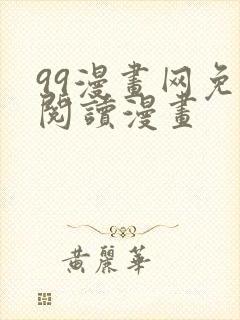 99漫畫网免
閱讀漫畫
黃麗華